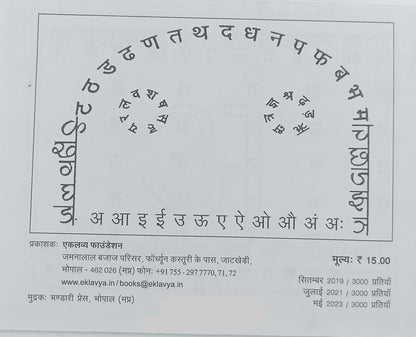 क ख ग घ ङ ट ठ ड ढ ण त थ द ध न प फ ब भ म च छ ज झ ञ
य र ल व श ष स ह
त्र ज्ञ श्र ढ़ ड़ ऋ
अ आ इ ई उ ऊ ए ऐ ओ औ अं अः
प्रकाशकः एकलव्य फाउंडेशन
जमनालाल बजाज परिसर, फॉर्च्यून कस्तूरी के पास, जाटखेड़ी,
भोपाल - 462 026 (मप्र) फोनः +91 755 - 297 7770, 71, 72
www.eklavya.in / books@eklavya.in
मुद्रकः भण्डारी प्रेस, भोपाल (मप्र)
मूल्यः ₹ 15.00
सितम्बर 2019 / 3000 प्रतियाँ
जुलाई 2021 / 3000 प्रतियाँ
मई 2023 / 3000 प्रतियाँ